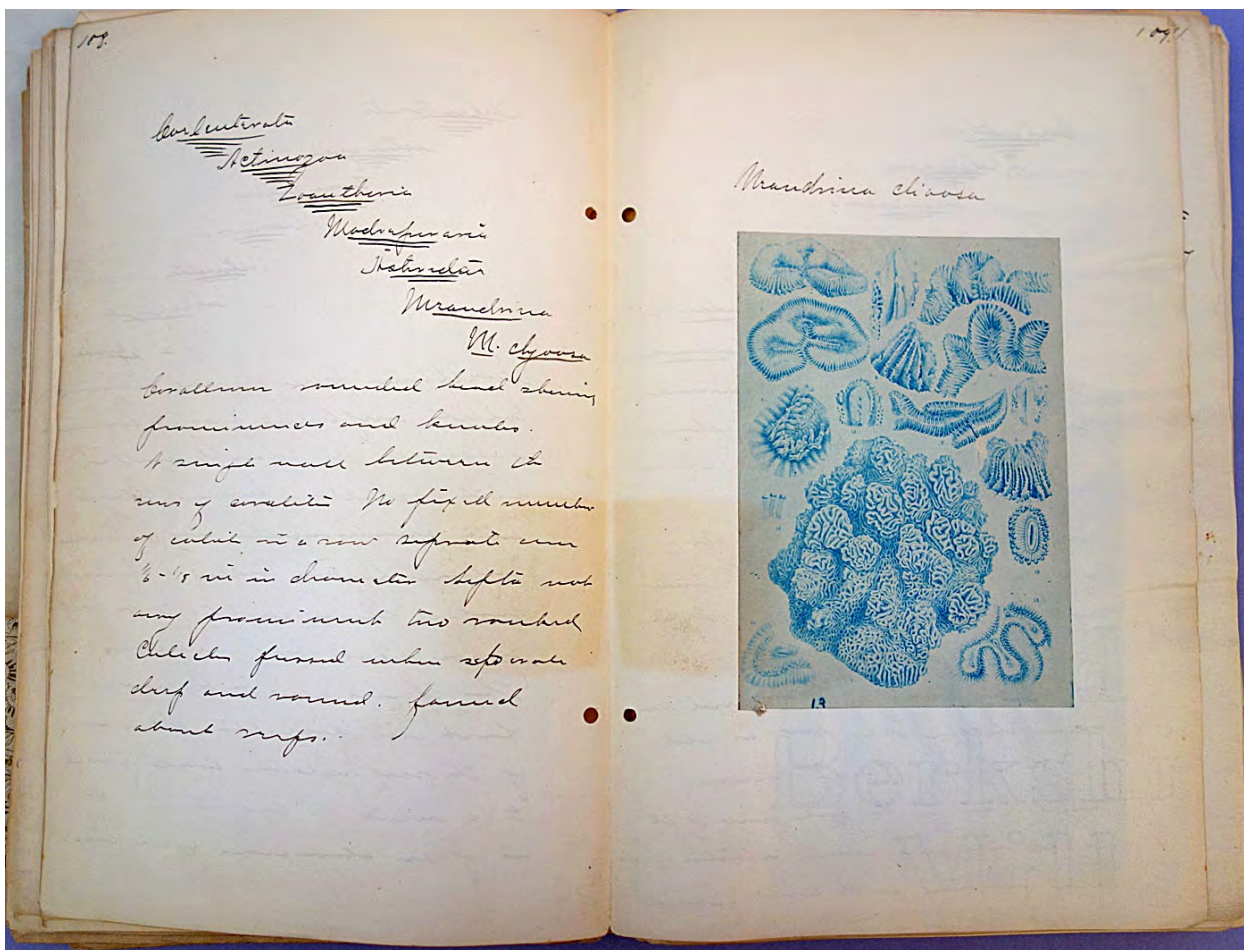 108.
Coelenterata
Actinozoa
Zoantheria
Madreporaria
Astridae
Meandrina
M.
Corallum rounded head
prominences and knobs.
A single wall between the
rows of corallites No fixed number
of in a row separate ones
1/6-1/5 in in diameter septa not
very prominent two ranked
Calicles fused when separate
deep and round. found
about reefs.
109
Meandrina clivosa
13